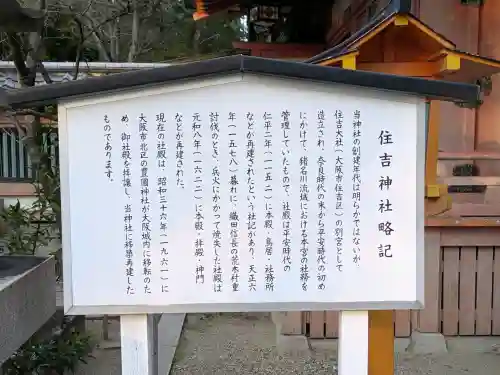 住吉神社略記
当神社の創建年代は明らかではないが、
住吉大社（大阪市住吉区）の別宮として
造立され、奈良時代の末から平安時代の初め
にかけて、猪名川流域における本宮の社務を
管理していたもので、社殿は平安時代の
仁平二年（一一五二）に本殿・鳥居・社務所
などが再建されたという社記があり、天正六
年（一五七八）暮れに、織田信長の荒木村重
討伐のとき、兵火にかかって焼失した社殿は
元和八年（一六二二）に本殿・拝殿・神門
などが再建された。
現在の社殿は、昭和三十六年（一九六一）
大阪市北区の豊國神社が大阪城内に移転のた
め、御社殿を拝譲し、当神社に移築再建した
ものであります。